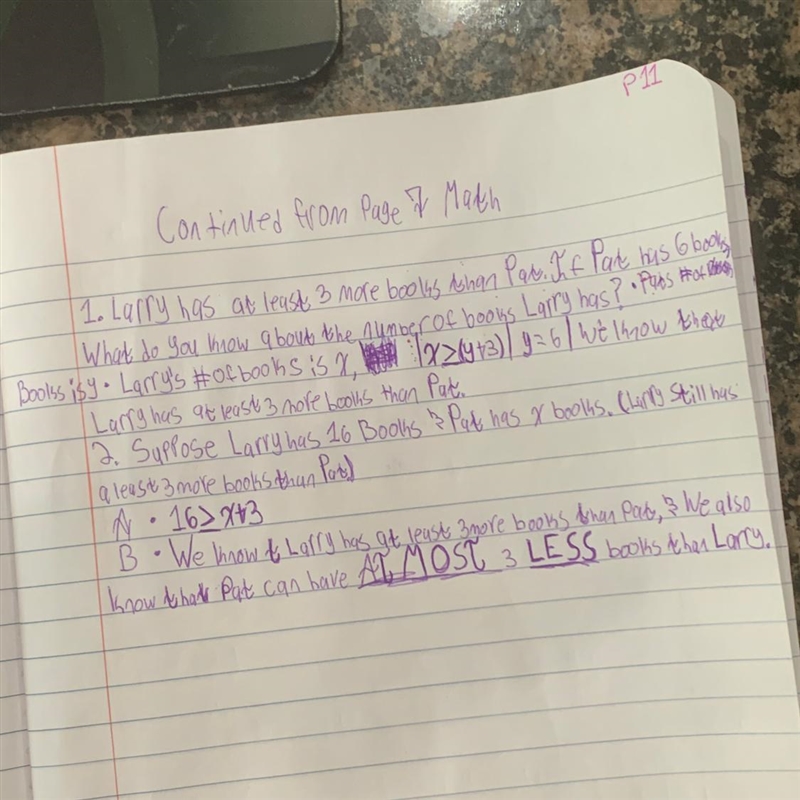 P11
Continued from Page 7 Math
1. Larry has at least 3 more books than Pat. If Pat has 6 books,
What do you know about the number of books Larry has? • Pats # of
Books is y • Larry's # of books is x, |x≥(y+3)| y=6 | We know that
Larry has at least 3 more books than Pat.
2. Suppose Larry has 16 Books & Pat has x books. (Larry Still has
a least 3 more books than Pat)
A • 16≥x+3
B • We know t Larry has at least 3 more books than Pat, & We also
know that Pat can have AT MOST 3 LESS books than Larry.